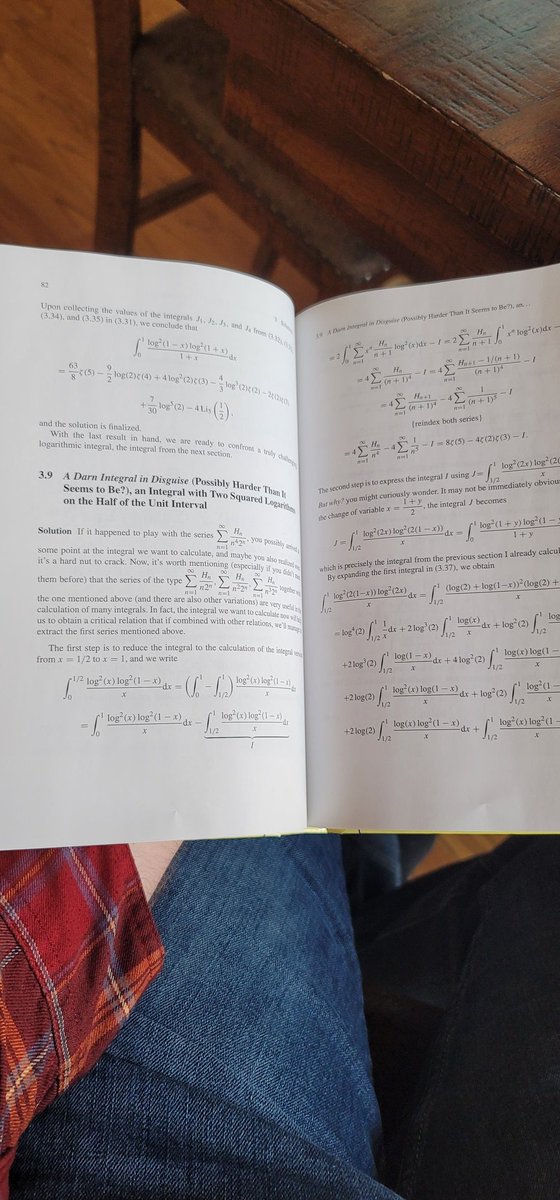 82
Upon collecting the values of the integrals J₁, J₂, J₃, and J₄ from (3.32),
(3.34), and (3.35) in (3.31), we conclude that
∫₀¹ log²(1 − x) log²(1 + x) / (1 + x) dx
= 63/8 ζ(5) − 9/2 log(2)ζ(4) + 4 log²(2)ζ(3) − 4/3 log³(2)ζ(2) − 2ζ(2)ζ(3)
+ 7/30 log⁵(2) − 4 Li₅(1/2),
and the solution is finalized.
With the last result in hand, we are ready to confront a truly challenging
logarithmic integral, the integral from the next section.
3.9 A Darn Integral in Disguise (Possibly Harder Than It
Seems to Be?), an Integral with Two Squared Logarithms
on the Half of the Unit Interval
Solution If it happened to play with the series ∑_{n=1}^{∞} Hₙ/(n⁴2ⁿ), you possibly arrived
some point at the integral we want to calculate, and maybe you also realized
it's a hard nut to crack. Now, it's worth mentioning (especially if you didn't
them before) that the series of the type ∑_{n=1}^{∞} Hₙ/(n2ⁿ), ∑_{n=1}^{∞} Hₙ/(n²2ⁿ), ∑_{n=1}^{∞} Hₙ/(n³2ⁿ) together with
the one mentioned above (and there are also other variations) are very useful in the
calculation of many integrals. In fact, the integral we want to calculate now will
us to obtain a critical relation that if combined with other relations, we'll
extract the first series mentioned above.
The first step is to reduce the integral to the calculation of the integral
from x = 1/2 to x = 1, and we write
∫₀^{1/2} log²(x) log²(1 − x) / x dx = (∫₀¹ − ∫_{1/2}^{1}) log²(x) log²(1 − x) / x dx
= ∫₀¹ log²(x) log²(1 − x) / x dx − ∫_{1/2}^{1} log²(x) log²(1 − x) / x dx
I
3.9 A Darn Integral in Disguise (Possibly Harder Than It Seems to Be?), an...
= 2 ∫₀¹ ∑_{n=1}^{∞} xⁿ Hₙ/(n + 1) log²(x)dx − I = 2 ∑_{n=1}^{∞} Hₙ/(n + 1) ∫₀¹ xⁿ log²(x)dx −
= 4 ∑_{n=1}^{∞} Hₙ/(n + 1)⁴ − I = 4 ∑_{n=1}^{∞} (Hₙ₊₁ − 1/(n + 1))/(n + 1)⁴ − I
= 4 ∑_{n=1}^{∞} Hₙ₊₁/(n + 1)⁴ − 4 ∑_{n=1}^{∞} 1/(n + 1)⁵ − I
{reindex both series}
= 4 ∑_{n=1}^{∞} Hₙ/n⁴ − 4 ∑_{n=1}^{∞} 1/n⁵ − I = 8ζ(5) − 4ζ(2)ζ(3) − I.
The second step is to express the integral I using J = ∫_{1/2}^{1} log²(2x) log²(2(
But why? you might curiously wonder. It may not be immediately obvious
the change of variable x = (1 + y)/2, the integral J becomes
J = ∫_{1/2}^{1} log²(2x) log²(2(1 − x)) / x dx = ∫₀¹ log²(1 + y) log²(1 − / 1 + y
which is precisely the integral from the previous section I already calcul
By expanding the first integral in (3.37), we obtain
∫_{1/2}^{1} log²(2(1 − x)) log²(2x) / x dx = ∫_{1/2}^{1} (log(2) + log(1 − x))²(log(2) +
= log⁴(2) ∫_{1/2}^{1} 1/x dx + 2 log³(2) ∫_{1/2}^{1} log(x)/x dx + log²(2) ∫_{1/2}^{1} log
+2 log³(2) ∫_{1/2}^{1} log(1 − x)/x dx + 4 log²(2) ∫_{1/2}^{1} log(x) log(1 −
+2 log(2) ∫_{1/2}^{1} log²(x) log(1 − x)/x dx + log²(2) ∫_{1/2}^{1} log²(1 −
+2 log(2) ∫_{1/2}^{1} log(x) log²(1 − x)/x dx + ∫_{1/2}^{1} log²(x) log²(1 − / x